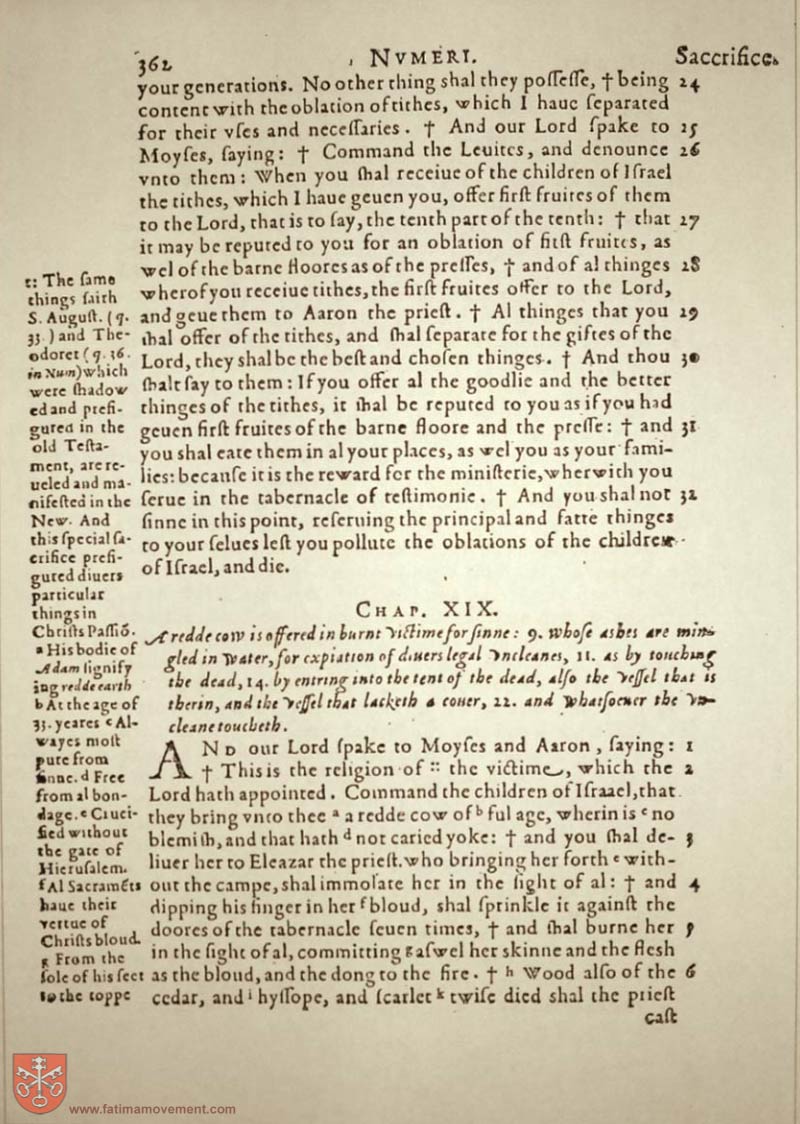 362
NVMERI.
Saccrifice.
your generations. No other thing shal they poſſeſſe, † being 24
content with the oblation of tithes, which I haue ſeparated
for their vſes and neceſſaries. † And our Lord ſpake to 25
Moyſes, ſaying: † Command the Leuites, and denounce 26
vnto them: When you ſhal receiue of the children of Iſrael
the tithes, which I haue geuen you, offer firſt fruites of them
to the Lord, that is to ſay, the tenth part of the tenth: † that 27
it may be reputed to you for an oblation of firſt fruites, as
wel of the barne floores as of the preſſes, † and of al thinges 28
wherof you receiue tithes, the firſt fruites offer to the Lord,
and geue them to Aaron the prieſt. † Al thinges that you 29
ſhal offer of the tithes, and ſhal ſeparate for the giftes of the
Lord, they shal be the beſt and choſen thinges. † And thou 30
ſhalt ſay to them: If you offer al the goodlie and the better
thinges of the tithes, it ſhal be reputed to you as if you had
geuen firſt fruites of the barne floore and the preſſe: † and 31
you shal eate them in al your places, as wel you as your fami-
lies: becauſe it is the reward for the miniſterie, wherwith you
ſerue in the tabernacle of teſtimonie. † And you shal not 32
ſinne in this point, reſeruing the principal and fatte thinges
to your ſelues leſt you pollute the oblations of the children
of Iſrael, and die.
:: The ſame
things ſaith
S. Auguſt. (q.
33.) and The-
odoret (q. 36.
in Num) which
were ſhadow
ed and prefi-
gured in the
old Teſta-
ment, are re-
ueled and ma-
nifeſted in the
New. And
this ſpecial ſa-
crifice prefi-
gured diuers
particular
things in
Chriſts Paſſiõ.
a His bodie of
Adam ſignify
ing redde earth
b At the age of
33. yeares c Al-
wayes moſt
pure from
ſinne. d Free
from al bon-
dage. e Cruci-
fied without
the gate of
Hieruſalem.
f Al Sacramẽts
haue their
vertue of
Chriſts bloud.
g From the
ſole of his feet
to the toppe
CHAP. XIX.
A redde cow is offered in burnt victime for ſinne: 9. whoſe ashes are min-
gled in water, for expiation of diuers legal vncleanes, 11. as by touching
the dead, 14. by entring into the tent of the dead, alſo the veſſel that is
therin, and the veſſel that lacketh a couer, 22. and whatſoeuer the vn-
cleane toucheth.
AND our Lord ſpake to Moyſes and Aaron, ſaying: 1
† This is the religion of :: the victime, which the 2
Lord hath appointed. Command the children of Iſraael, that
they bring vnto thee a a redde cow of b ful age, wherin is c no
blemiſh, and that hath d not caried yoke: † and you ſhal de- 3
liuer her to Eleazar the prieſt. who bringing her forth e with-
out the campe, shal immolate her in the ſight of al: † and 4
dipping his finger in her f bloud, shal ſprinkle it againſt the
doores of the tabernacle ſeuen times, † and ſhal burne her 5
in the ſight of al, committing g aſwel her skinne and the fleſh
as the bloud, and the dong to the fire. † h Wood alſo of the 6
cedar, and i hyſſope, and ſcarlet k twiſe died shal the prieſt
caſt
www.fatimamovement.com